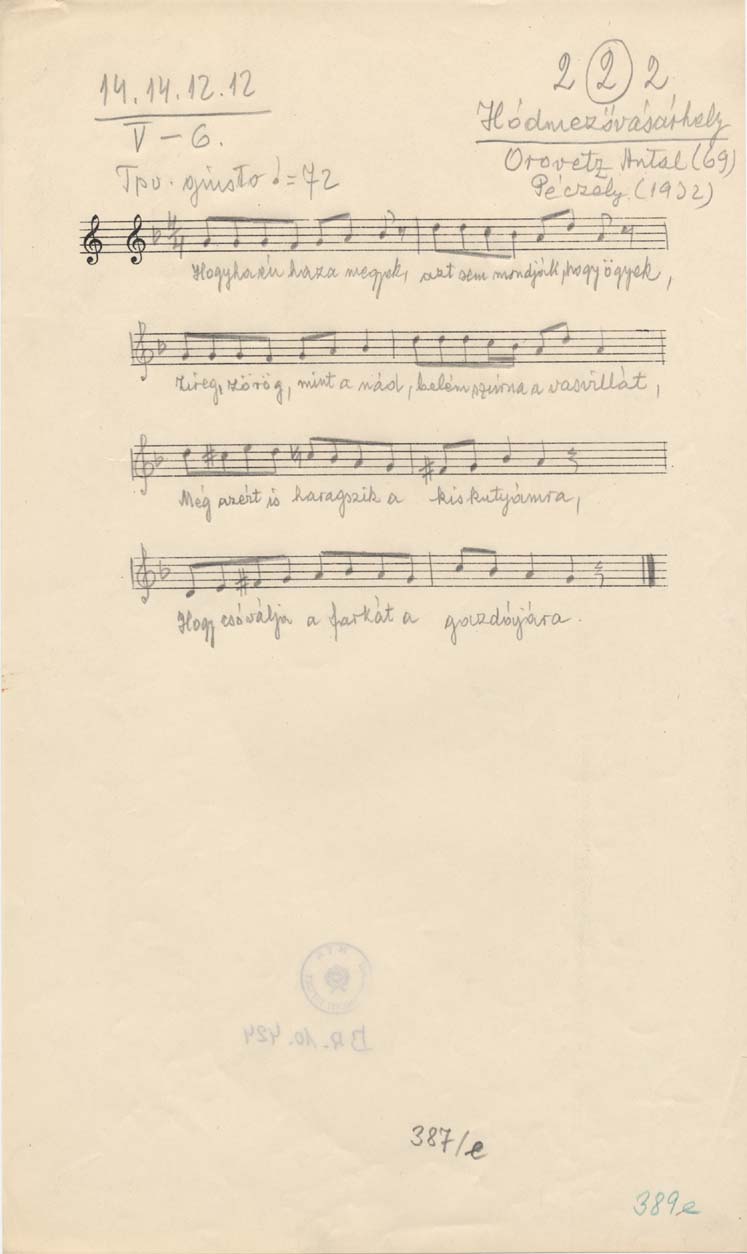 14.14.12.12
V-6.
Tpo. giusto ♩=72
2 2 2
Hódmezővásárhely
Orovetz Antal (69)
Péczely (1932)
4/4
Hogyha én haza megyek, azt sem mondják, hogy ögyek,
Zireg, zörög, mint a nád, belém szúrna a vasvillát,
Még azért is haragszik a kis kutyámra,
Hogy csóválja a farkát a gazdájára.
BR-10.424
387/e
389e